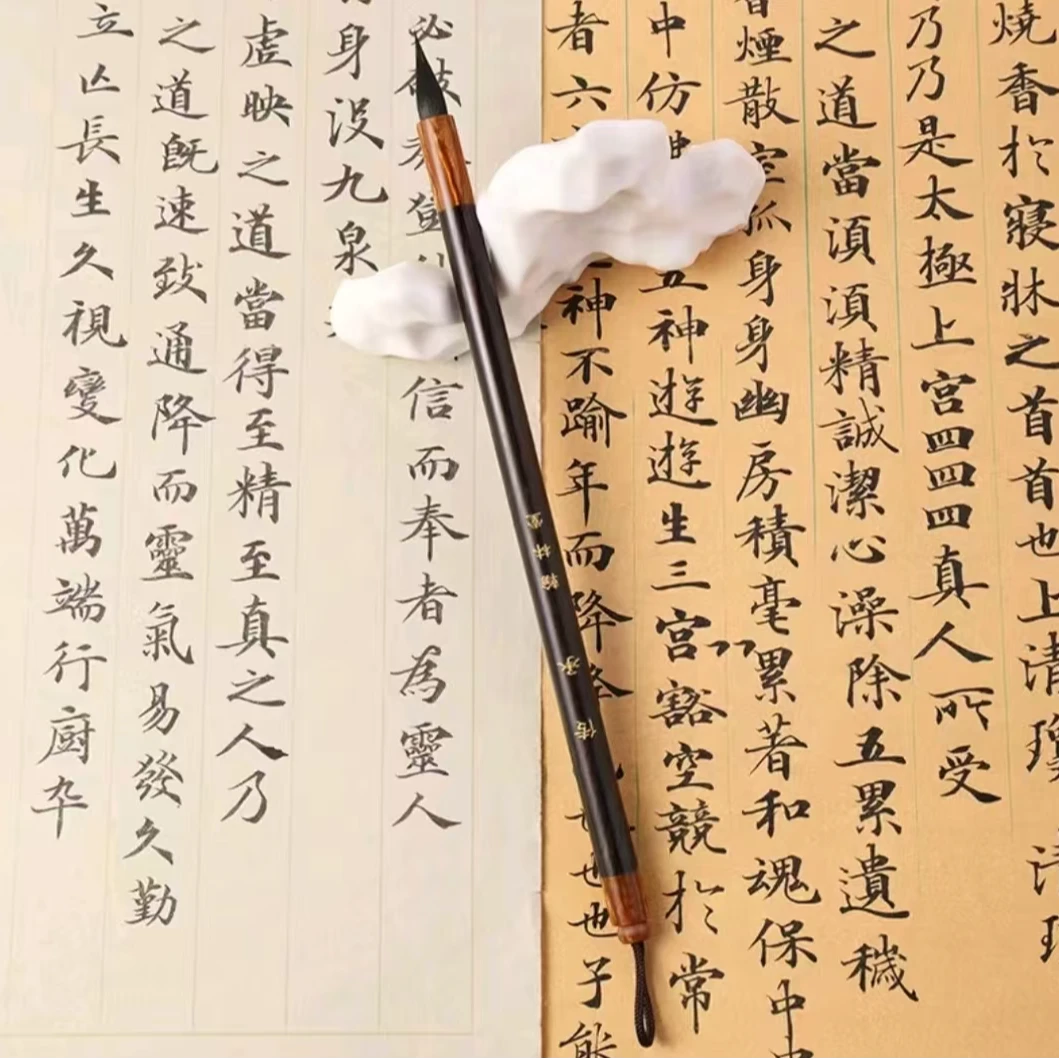 燒香於寢牀之首首也上清
乃乃是太極上宮四四四真人所受
之道當須須精誠潔心澡除五累遺穢
煙散空孤身身幽房積毫累著和魂保中
中仿五神遊遊生三宮豁空競於常
者六神不踰年而降降也也子能
信而奉者為靈人
身沒九泉
虛映之道當得至精至真之人乃
之道既速致通降而靈氣易發久勤
立亾長生久視變化萬端行厨卒
翰林堂
传承